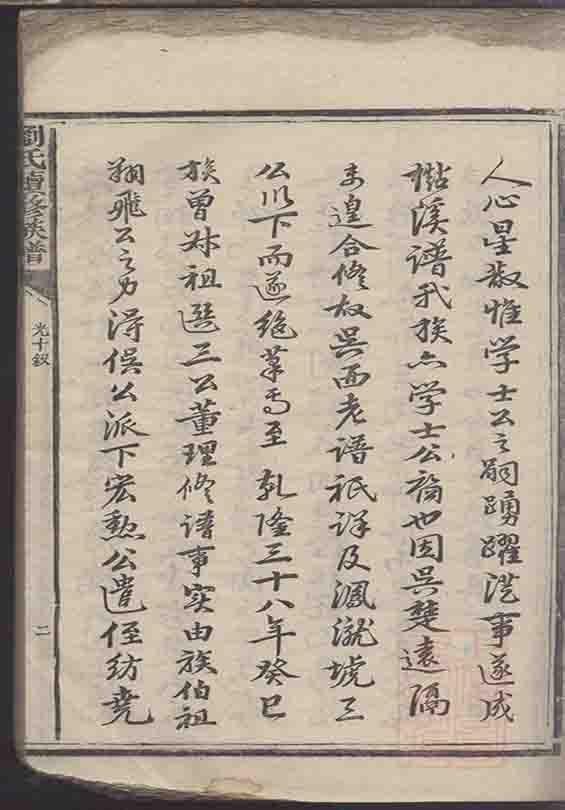 人心星散惟学士公之嗣踴躍従事遂成
溪譜我族亦学士公裔也因吴楚遠隔
未遑合修故吴西老譜祇详及澑琥三
公以下而遂绝笔焉至乾隆三十八年癸巳
族曾叔祖選三公董理修譜事实由族伯祖
翔飛公之力得俣公派下宏勲公遣侄紡堯
劉氏續修族譜
光十釵
二